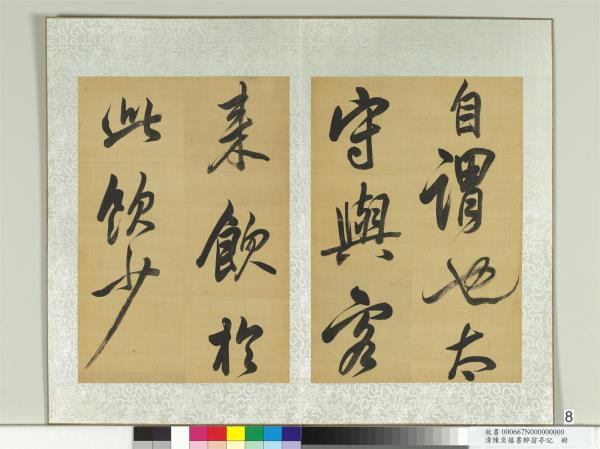 自謂也太
守與客
来飲於
此飲少
8
故書000667N000000000
清陳奕禧書醉翁亭記 冊